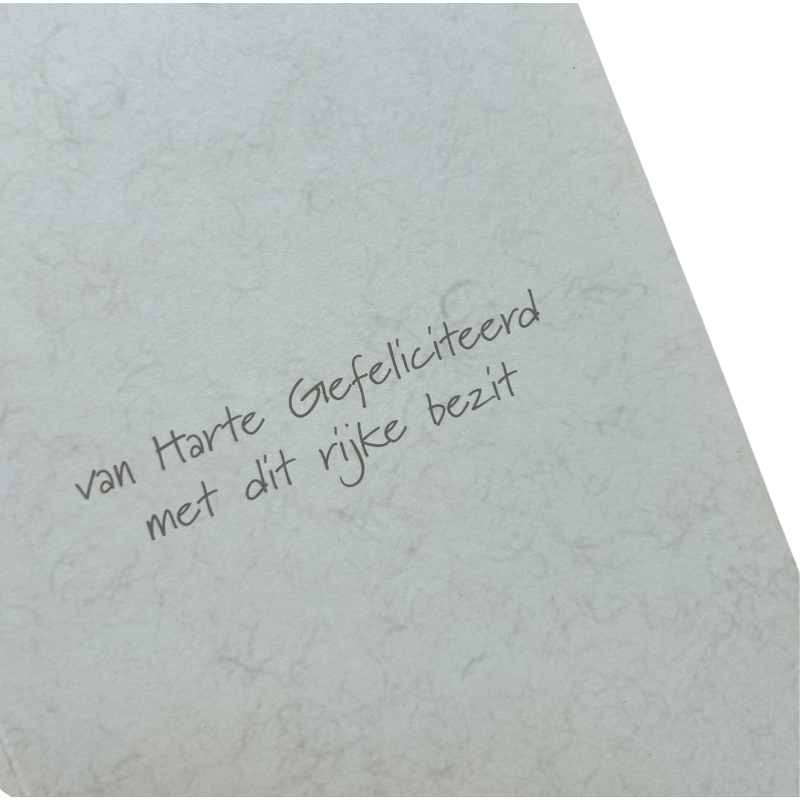 van Harte Gefeliciteerd
met dit rijke bezit